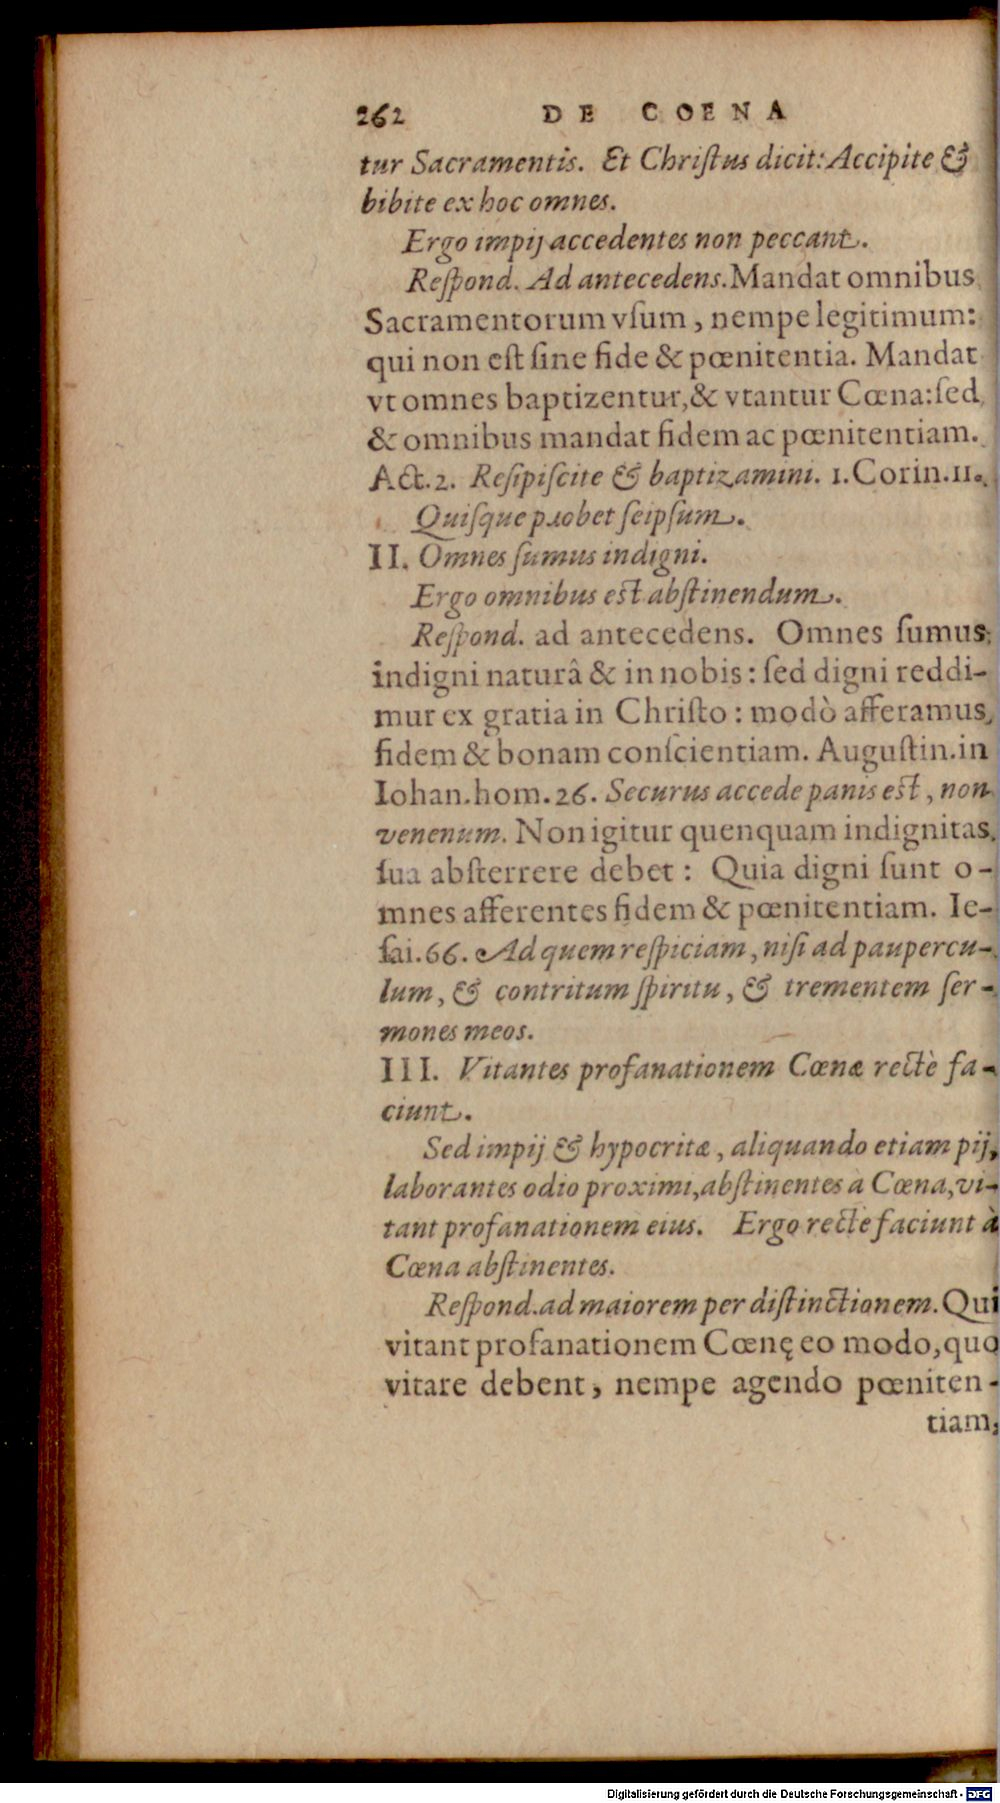 262 DE COENA
tur Sacramentis. Et Chriſtus dicit: Accipite &
bibite ex hoc omnes.
Ergo impij accedentes non peccant.
Reſpond. Ad antecedens. Mandat omnibus
Sacramentorum vſum, nempe legitimum:
qui non eſt ſine fide & pœnitentia. Mandat
vt omnes baptizentur, & vtantur Cœna: ſed
& omnibus mandat fidem ac pœnitentiam.
Act. 2. Reſipiſcite & baptizamini. 1. Corin. 11.
Quiſque probet ſeipſum.
II. Omnes ſumus indigni.
Ergo omnibus eſt abſtinendum.
Reſpond. ad antecedens. Omnes ſumus
indigni naturâ & in nobis: ſed digni reddi-
mur ex gratia in Chriſto: modò afferamus
fidem & bonam conſcientiam. Auguſtin. in
Iohan. hom. 26. Securus accede panis eſt, non
venenum. Non igitur quenquam indignitas
ſua abſterrere debet: Quia digni ſunt o-
mnes afferentes fidem & pœnitentiam. Ie-
ſai. 66. Ad quem reſpiciam, niſi ad paupercu-
lum, & contritum ſpiritu, & trementem ſer-
mones meos.
III. Vitantes profanationem Cœnæ rectè fa-
ciunt.
Sed impij & hypocritæ, aliquando etiam pij,
laborantes odio proximi, abſtinentes à Cœna, vi-
tant profanationem eius. Ergo rectè faciunt à
Cœna abſtinentes.
Reſpond. ad maiorem per diſtinctionem. Qui
vitant profanationem Cœnę eo modo, quo
vitare debent, nempe agendo pœniten-
tiam,
Digitalisierung gefördert durch die Deutsche Forschungsgemeinschaft - DFG